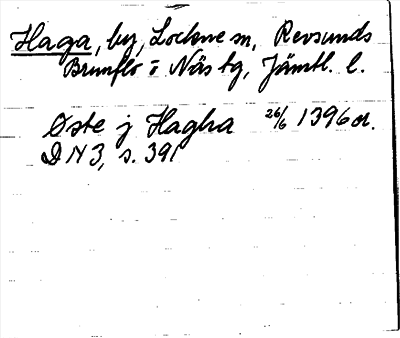 Haga, by, Lockne sn, Revsunds
Brunflo o Näs tg, Jämtl. l.
Øste j Hagha 26/6 1396 or.
DN 3, s. 391